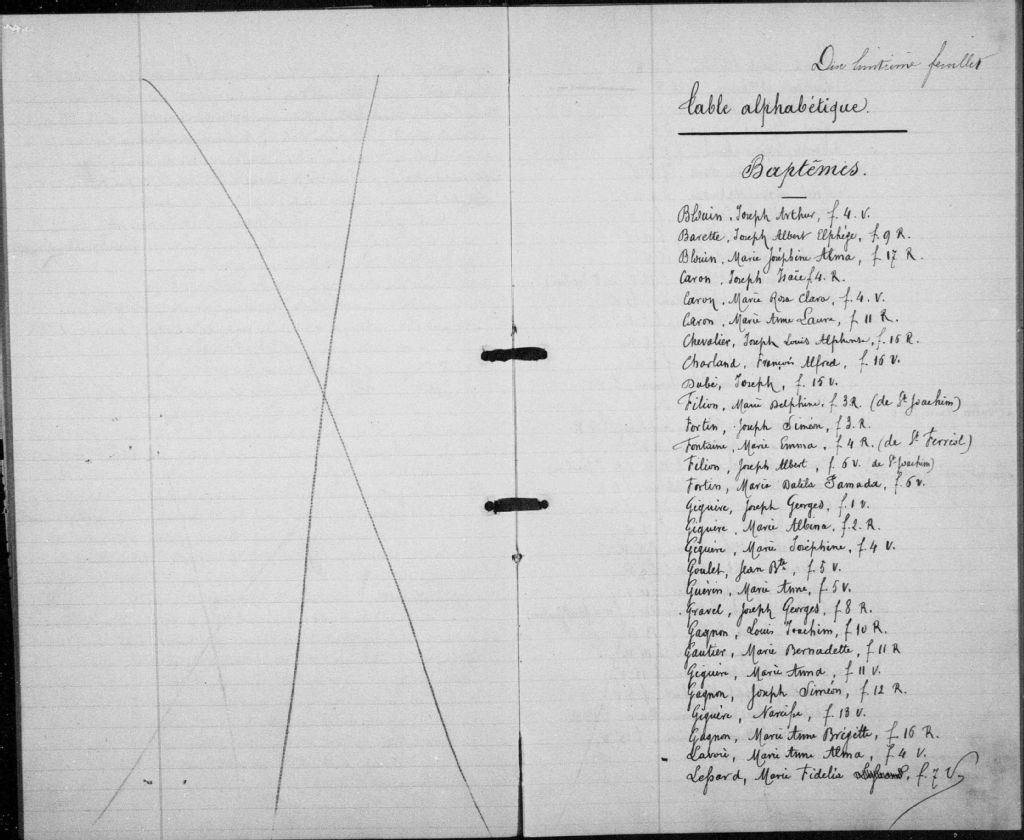 Dix huitième feuillet
Table alphabétique.
Baptêmes.
Blouin, Joseph Arthur, f. 4. V.
Barette, Joseph Albert Elphége, f. 9 R.
Blouin, Marie Joséphine Alma, f 17 R.
Caron, Joseph Isaïe f 4. R.
Caron, Marie Rose Clara, f. 4. V.
Caron, Marie Anne Laure, f 11 R.
Chevalier, Joseph Louis Alphonse, f. 15 R.
Charland, François Alfred, f. 16 V.
Dubé, Joseph, f. 15 V.
Filion, Marie Delphine, f 3 R. (de St Joachim)
Fortin, Joseph Siméon, f 3. R.
Fontaine, Marie Emma, f 4 R. (de St Ferréol)
Filion, Joseph Albert, f. 6 V. de St Joachim)
Fortin, Marie Dalila, f. 6 V.
Giguère, Joseph Georges, f. 1 V.
Giguère, Marie Albina, f. 2. R.
Giguère, Marie Joséphine, f 4 V.
Goulet, Jean Bte, f. 5 V.
Guérin, Marie Anne, f. 5 V.
Gravel, Joseph Georges, f 8 R.
Gagnon, Louis Joachim, f 10 R.
Gautier, Marie Bernadette, f 11 R
Giguère, Marie Anna, f 11 V.
Gagnon, Joseph Siméon, f 12 R.
Giguère, Narcisse, f. 13 V.
Gagnon, Marie Anne Brigitte, f 16 R.
Lavoie, Marie Anne Alma, f. 4 V.
Lessard, Marie Fidelia, f. 7 V,